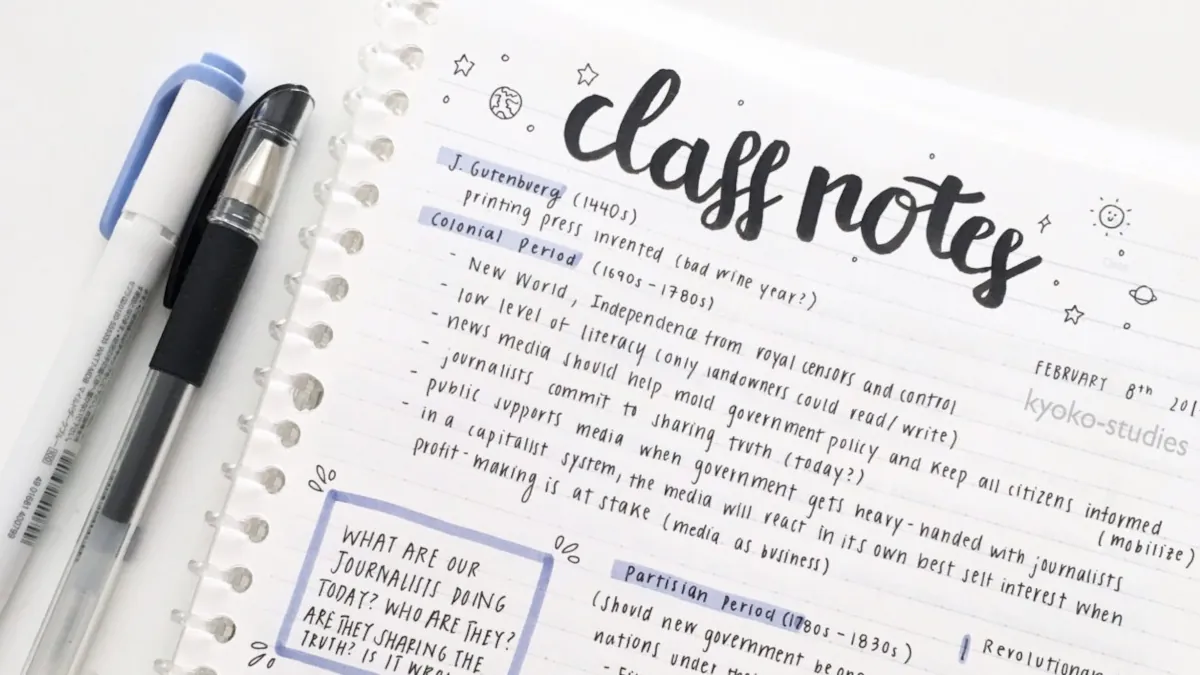 class notes
J. Gutenbuerg (1440s)
printing press invented (bad wine year?)
Colonial Period (1690s - 1780s)
- New World, Independence from royal censors and control
- low level of literacy (only landowners could read/write)
- news media should help mold government policy and keep all citizens informed
(mobilize)
- journalists commit to sharing truth (today?)
- public supports media when government gets heavy-handed with journalists
- in a capitalist system, the media will react in its own best self interest when
profit-making is at stake (media as business)
FEBRUARY 8th 201
kyoko-studies
WHAT ARE OUR
JOURNALISTS DOING
TODAY? WHO ARE THEY?
ARE THEY SHARING THE
TRUTH? IS IT
Partisian Period (1780s - 1830s)
(should new government be one
nations under
Revolutionar